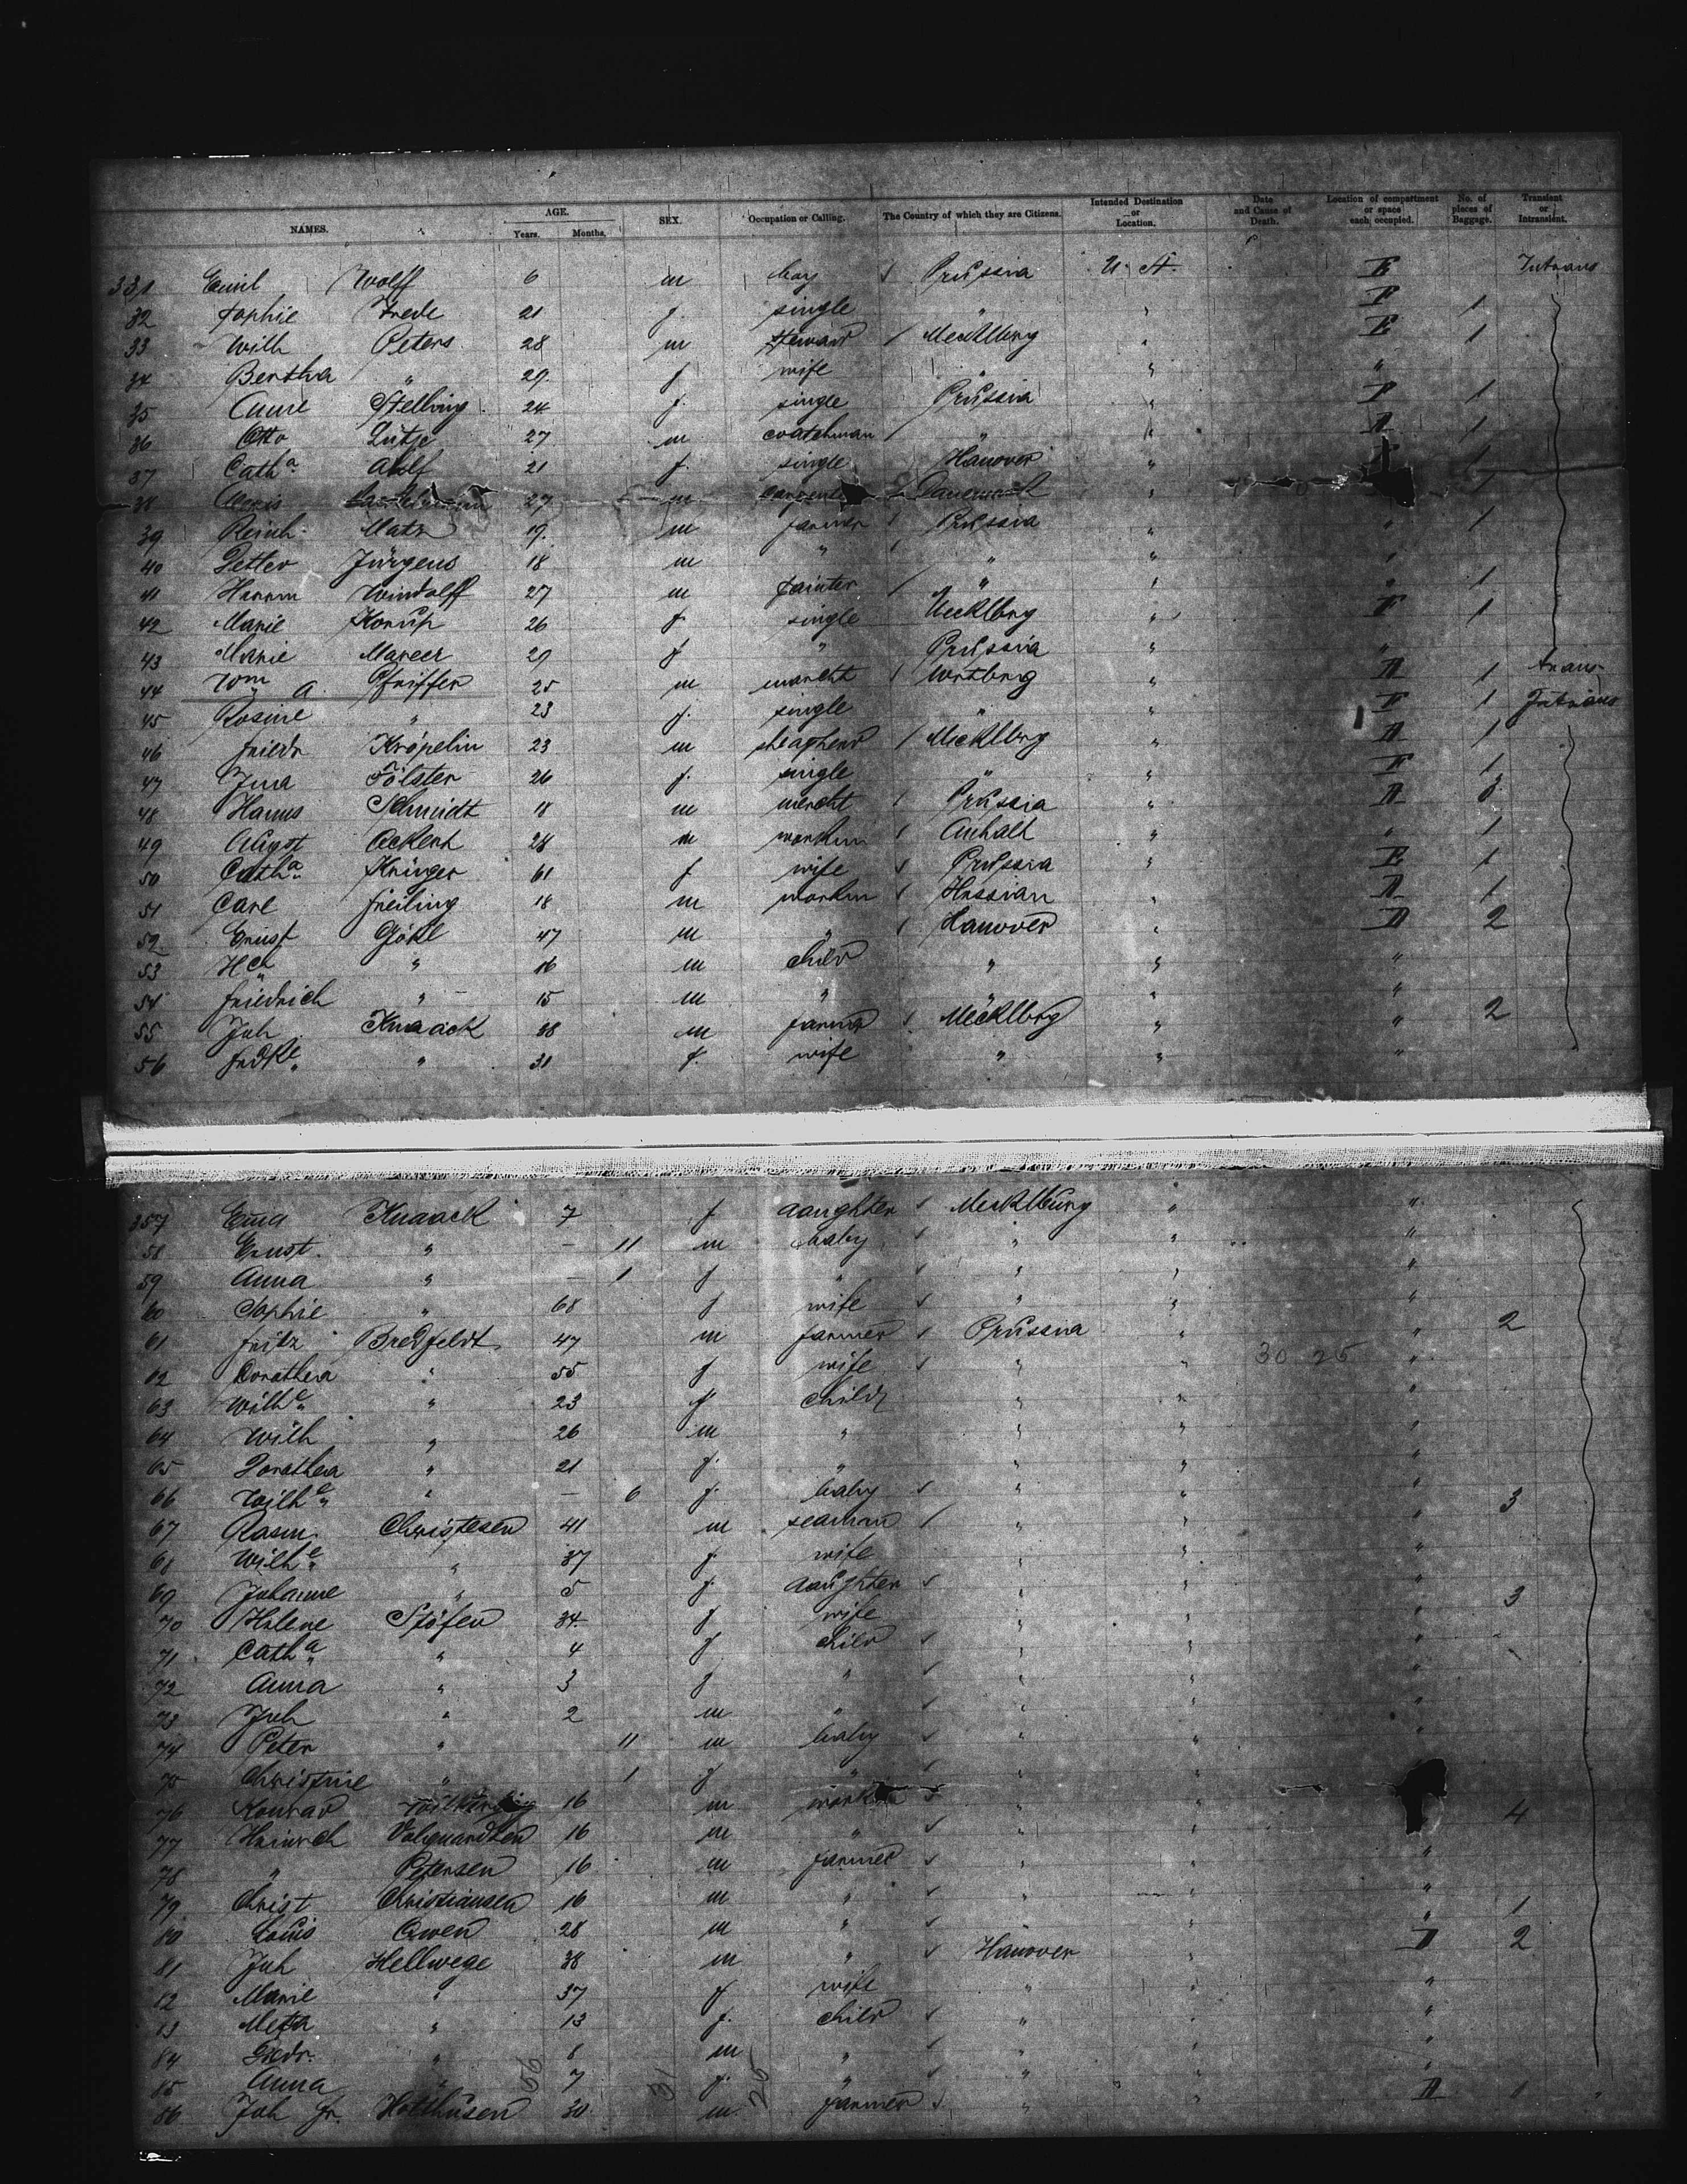 NAMES. AGE. Years. Months. SEX. Occupation or Calling. The Country of which they are Citizens. Intended Destination or Location. Date and Cause of Death. Location of compartment or space each occupied. No. of pieces of Baggage. Transient or Intransient.
331 Emil Wolff 6 m boy Prussia U. St. E Intrans
32 Sophie Frede 21 f. single " " F 1
33 Wilh Peters 28 m steward Mecklbrg " E 1
34 Bertha " 29. f wife " " "
35 Anne Stelling 24 f. single Prussia " F 1
36 Otto Lütje 27 m coatchman " " A 1
37 Cath.a Adolf 21 f. single Hanover " 1
38 27 m Danemark " 1
39 Reinh. Matz 19. m farmer Prussia " " 1
40 Detlev Jürgens 18 m " " " "
41 Herrm Windolff 27 m painter " " " 1
42 Marie Korup 26 f. single Mecklbrg " F 1
43 Marie Mareer 29 f " Prussia " "
44 Wm A. Pfeiffer 25 m marcht Wrtbrg " A 1 trans
45 Rosine " 23 f. single " " F 1 Intrans
46 Friedr Kröpelin 23 m sheapherd Mecklbrg " A 1
47 Ina Fölster 26 f. single " " F 1
48 Hanns Schmidt 18 m mercht Prussia " A 3
49 August Eckert 28 m workm Anhalt " " 1
50 Cath.a Krüger 61 f wife Prussia " E 1
51 Carl Freiling 18 m workm Hessian " A 1
52 Ernst Gökl 47 m " Hanover " D 2
53 Hch " 16 m child " " "
54 Friedrich " 15 m " " " "
55 Joh Knaack 38 m farmer Mecklbrg " " 2
56 Fridke " 31 f. wife " " "
357 Ema Knaack 7 f daughter Mecklburg " "
58 Ernst. " — 11 m baby " " "
59 Anna " — 1 f " " " "
60 Sophie " 68 f wife " " "
61 Fritz Bredfeldt 47 m farmer Prussia " " 2
62 Dorothea " 55 f wife " " 30 25 "
63 Wilhe " 23 f child " " "
64 Wilh " 26 m " " " "
65 Dorothea " 21 f. " " " "
66 Wilhe " — 6 f. baby " " " 3
67 Rasm. Christesen 41 m seaman " " "
68 Wilhe " 37 f. wife " " "
69 Johanne " 5 f. daughter " " "
70 Helene Stöfen 34. f wife " " " 3
71 Cath.a " 4 f child " " "
72 Anna " 3 f " " " "
73 Joh " 2 m " " " "
74 Peter " 11 m baby " " "
75 Christine " 1 f " " "
76 Konrad 16 m " " 4
77 Heinrich Volquardsen 16 m " " " "
78 " Petersen 16 m farmer " " "
79 Christ Christiansen 16 m " " " "
80 Louis Owen 28 m " " " " 1
81 Joh Hellwege 38 m " Hanover " D 2
82 Marie " 37 f wife " " "
83 Meta " 13 f. child " " "
84 Fredr. " 8 m " " " "
85 Anna " 7 f. " " " "
86 Joh Fr. Holthusen 30 m farmer " " A 1 "
56 31 25